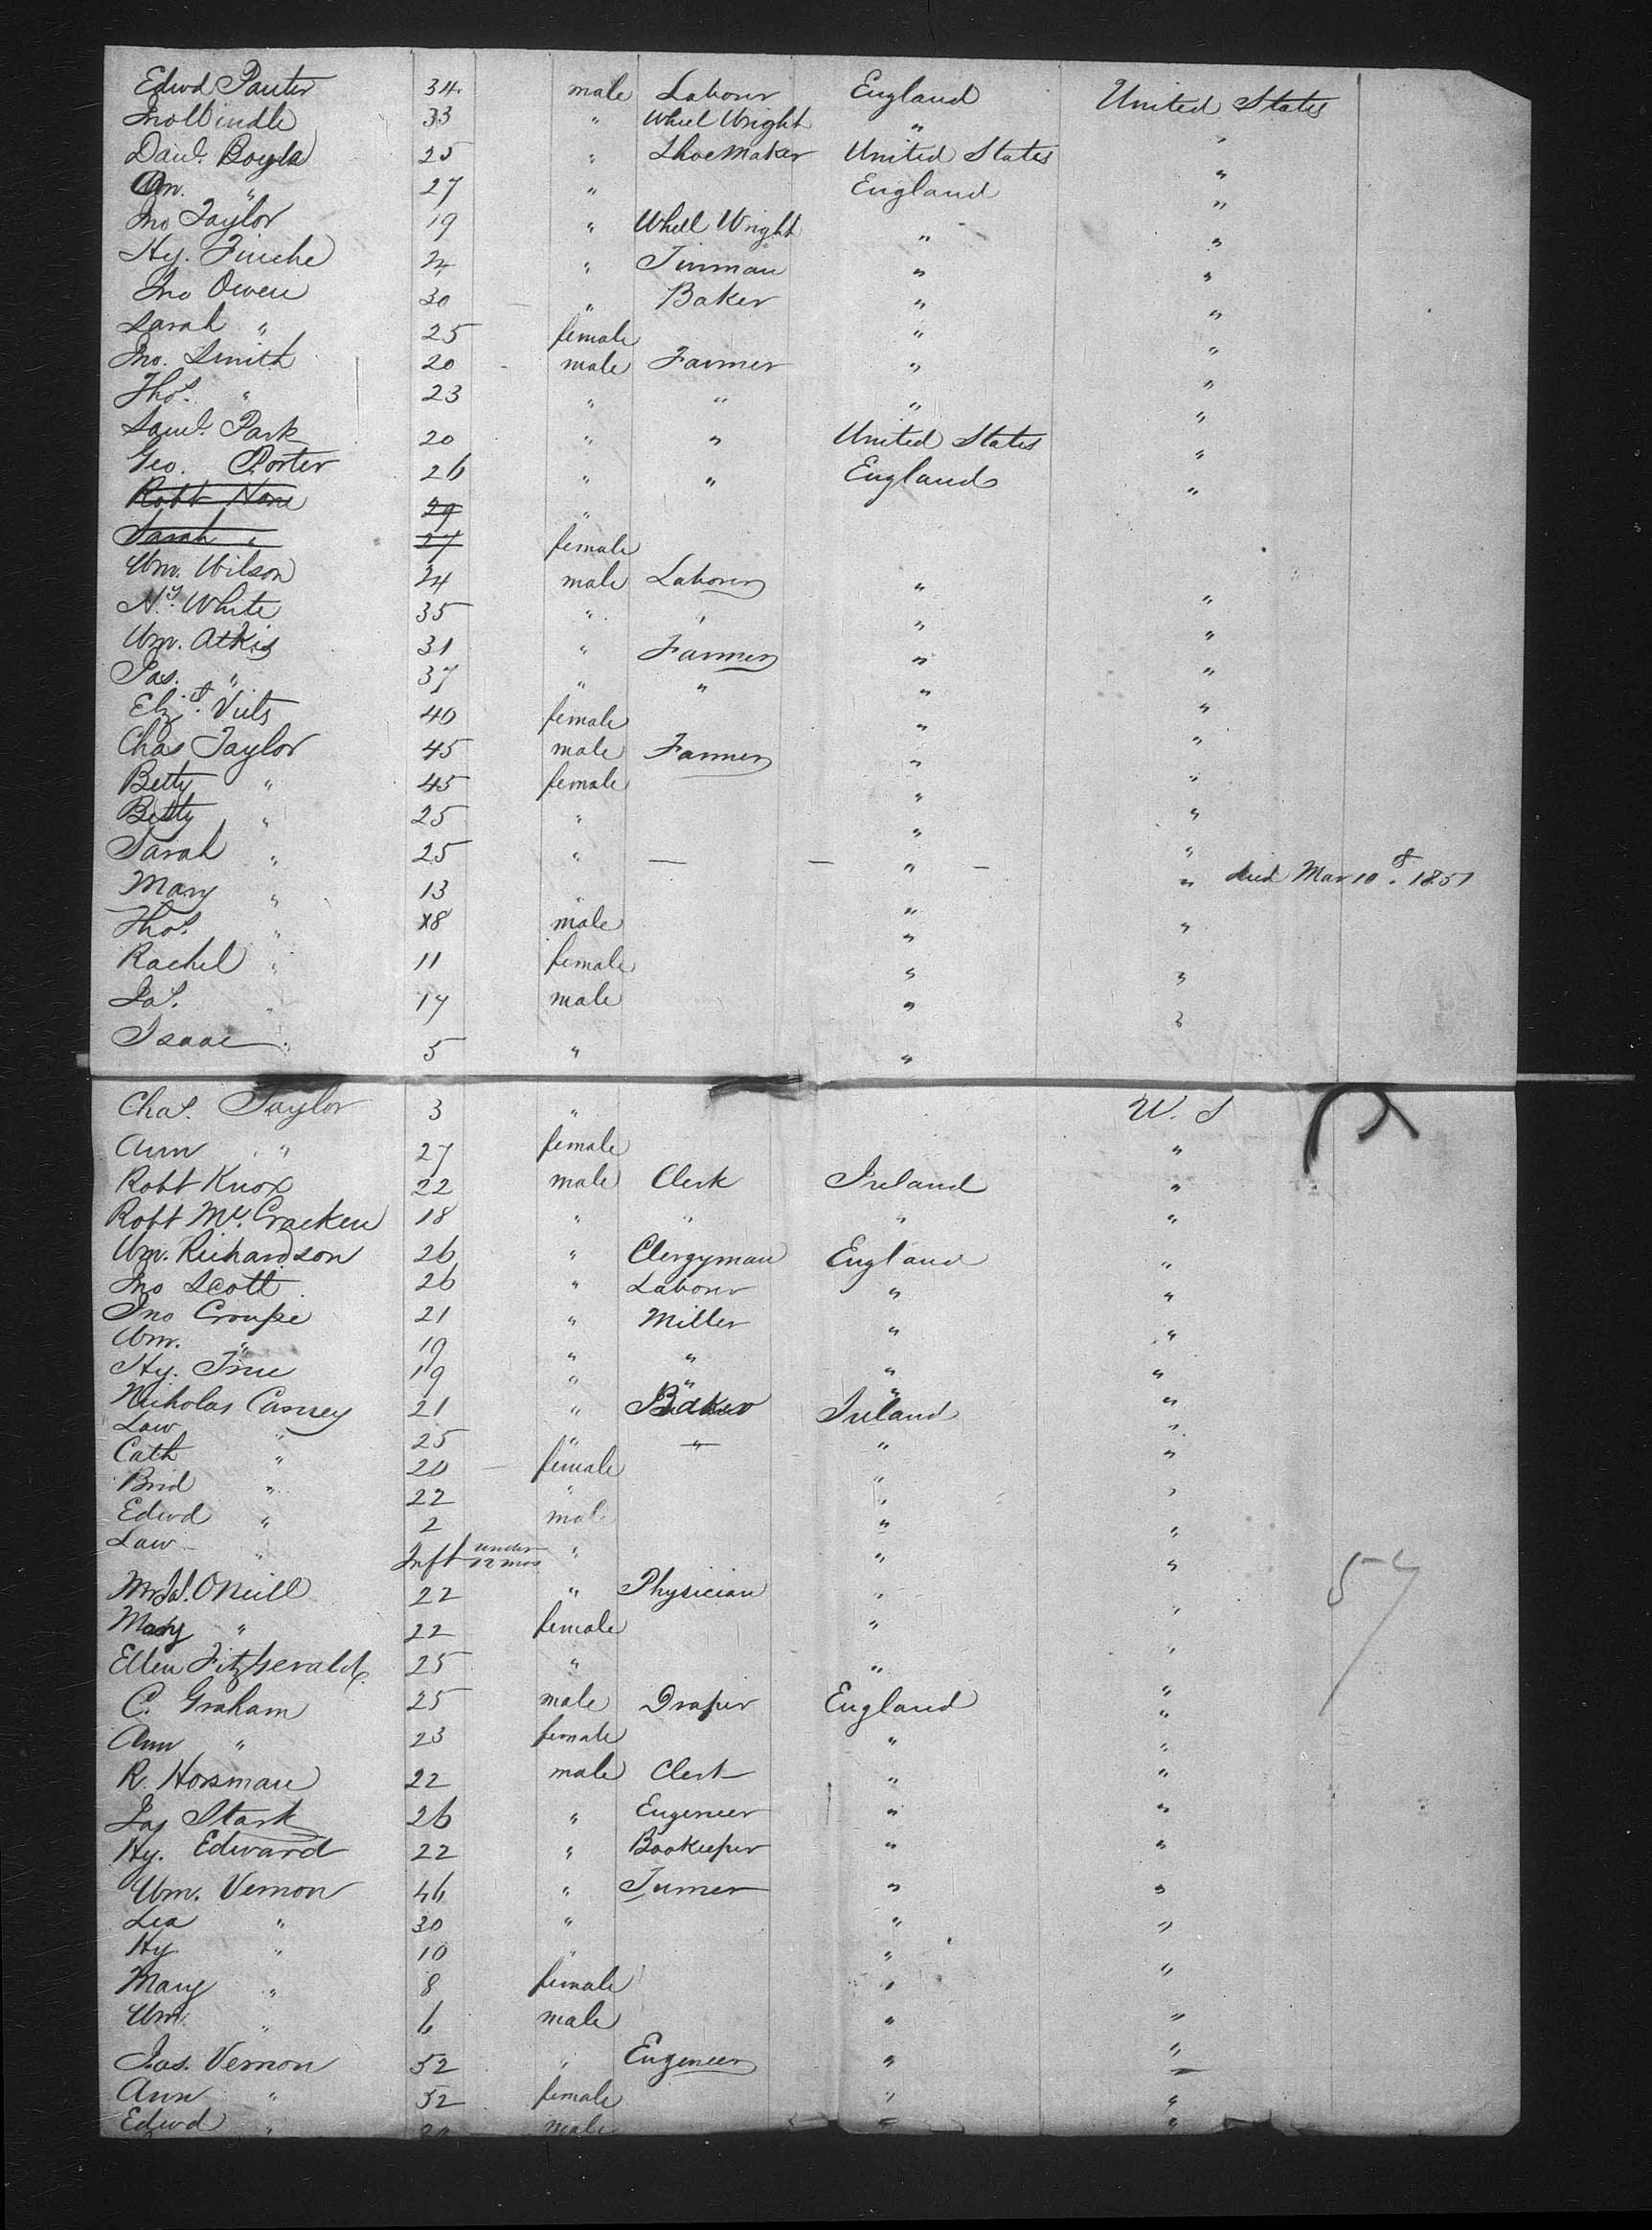 Edwd Pauter 34 male Laborer England United States
Jno Windle 33 " Wheel Wright " "
Danl. Boyle 25 " ShoeMaker United States "
Wm. " 27 " England "
Jno Taylor 19 " Wheel Wright " "
Hy. Finche 24 " Tinman " "
Jno Owen 30 " Baker " "
Sarah " 25 female " "
Jno. Smith 20 male Farmer " "
Thos. " 23 " " " "
Saml. Park 20 " " United States "
Geo. Porter 26 " " England "
Robt 29 "
Sarah " 27 female
Wm. Wilson 24 male Laborer " "
Hy. White 35 " " " "
Wm. Atkis 31 " Farmer " "
Jas. " 37 " " " "
Elzth. Viets 40 female " "
Chas Taylor 45 male Farmer " "
Betty " 45 female " "
Betty " 25 " " "
Sarah " 25 " — — " — " died Mar 10th. 1851
Mary " 13 " " "
Thos. " 18 male " "
Rachel " 11 female " "
Jas. " 17 male " "
Isaac " 5 " "
Chas. Taylor 3 " U. S
Ann " 27 female "
Robt Knox 22 male Clerk Ireland "
Robt Mc. Cracken 18 " " " "
Wm. Richardson 26 " Clergyman England "
Jno Scott 26 " Laborer " "
Jno Croupe 21 " Miller " "
Wm. " 19 " " " "
Hy. True 19 " " " "
Nicholas Casney 21 " Baker Ireland "
Law " 25 " " " "
Cath " 20 female " "
Brid " 22 " " "
Edwd " 2 male " "
Law " Inft under 12 mos " " "
Mr Jas. ONeill 22 " Physician " "
Mary " 22 female " "
Ellen Fitzgerald 25 " " "
C. Graham 25 male Draper England "
Ann " 23 female " "
R. Horsman 22 male Clerk " "
Jas Stark 26 " Engeneer " "
Hy. Edward 22 " Bookeeper " "
Wm. Vernon 46 " Turner " "
Lea " 30 " " "
Hy " 10 " " "
Mary " 8 female "
Wm. " 6 male " "
Jas. Vernon 52 " Engeneer " "
Ann " 52 female " "
Edwd " male " "
57